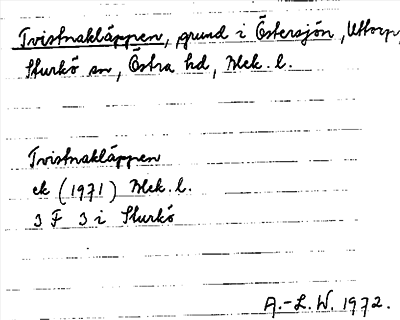 Tvistnakläppen, grund i Östersjön, Uttorp,
Sturkö sn, Östra hd, Blek. l.
Tvistnakläppen
ek (1971) Blek. l.
3 F 3 i Sturkö
A.-L. W. 1972.